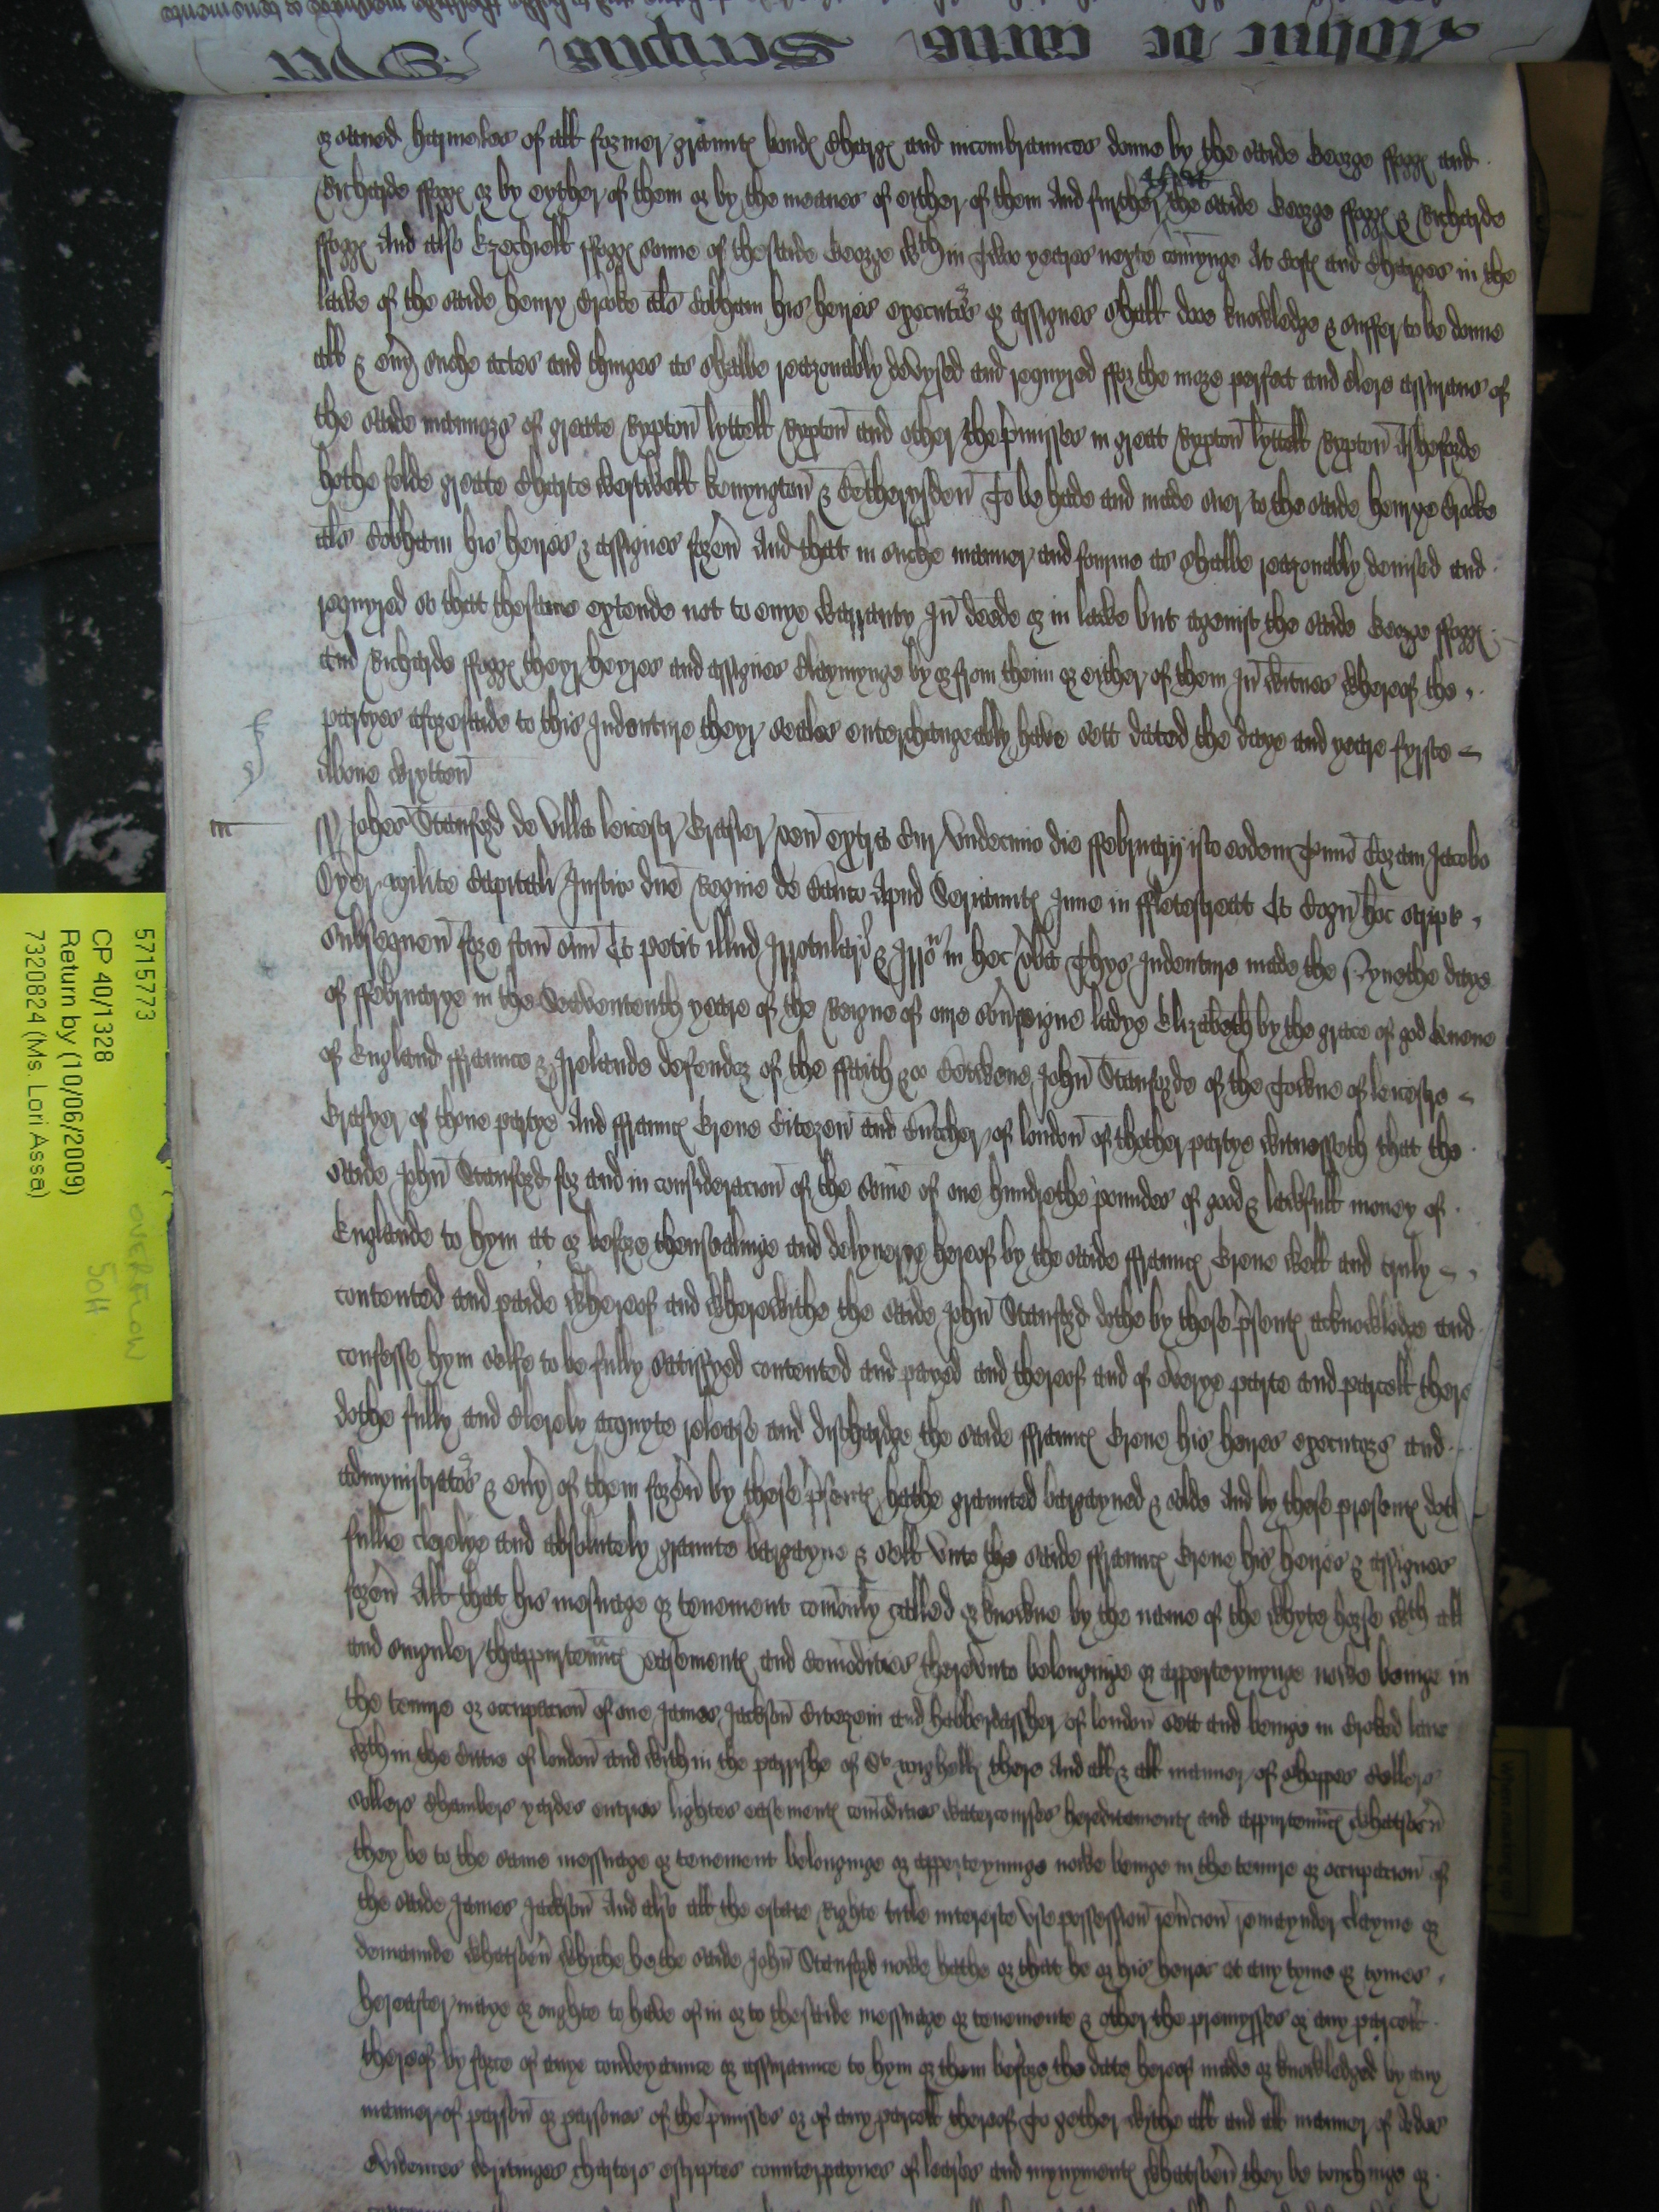 Adhuc de cartis Scriptis Irr
or saved harmeles of all former graunt bond charg and incombrannces donne by the saide George ffogg and
Richarde ffogg or by eyther of them or by the meanes of either of them And further that the saide George ffogg & Richarde
ffogg And also Ezechiell ffogg sonne of thesaide George wthin Twoo yeares nexte comynge At Cost and Charges in the
lawe of the saide henry Crooke als Cobham his heyres executors or assignes shall doe knowledge & suffer to be donne
all & evry suche actes and thinges as shalbe reazonably devysed and requyred ffor the more perfect and clere assuranc of
the saide mannors of greate Rypton lyttell Rypton and other the pmisses in great Rypton lyttell Rypton Asheforde
hothe felde greate Charte Westwell kenyngton & Bethersden To be hade and made over to the saide henrye Crooke
als Cobham his heires & assignes forev And that in suche manner and fourme as shalbe reazonably devised and
requyred so that thesame extende not to enye Warranty In deede or in lawe but agenist the saide George ffogg
and Richarde ffogg theyr heyres and assignes Claymynge by or from theim or either of them In Witnes whereof the
partyes aforesaide to this Indenture theyr seales enterchangeably have sett dated the daye and yeare fyrste
Above Wrytten
m
Johes Stanford de villa leicestr Grasier ven extra Cur undecimo die ffebruarij isto eodem Tmio Coram Jacobo
Dyer milite Capitali Justic dne Regine de Banco Apud Seriaunt Inne in ffletestreat Et Cogn hoc script
subsequen fore fcm suu Et petit illud Irrotulari & Irro in hec vba Thys Indenture made the Nynethe daye
of ffebruarye in the Seavententh yeare of the Reigne of oure Sovreigne ladye Elizabeth by the grace of god Quene
of England ffraunce & Irelande defender of the ffaith &c Betwene John Stanforde of the Towne of leicestre
Grasyer of thone partye And ffraunc Grene Citezen and Butcher of london of thother partye Witnesseth that the
saide John Stanford for and in consideracion of the some of one hundrethe poundes of good & lawfull money of
Englande to hym at or before thensealinge and delyverye hereof by the saide ffraunc Grene well and truly
contented and paide Whereof and Wherewithe the saide John Stanford dothe by these psent acknowledge and
confesse hym selfe to be fully satisfyed contented and payed and thereof and of everye parte and parcell there
dothe fully and Clerely acquyte release and discharge the saide ffraunc Grene his heires executors and
admynistrators & evry of them forev by these psent hathe graunted bargayned & solde And by these present doth
fullie clerelye and absolutely graunte bargayne & sell unto the saide ffraunc Grene his heires & assignes
forev All that his mesuage or tenement comonly called or knowne by the name of the Whyte horse wth all
and singuler thappurtennc easement and Comodities thereunto belonginge or apperteynynge nowe beinge in
the tenure or occupacion of one James Jackson Citezein and habberdassher of london sett and beinge in Croked lane
wthin the Cittie of london and within the parrishe of St mighell there And all & all manner of Shoppes Cellers
sollers Chambers yardes entries lightes easement comodities watercourses hereditament and appurtennc whatsoev
they be to the same messuage or tenement belonginge or apperteyninge nowe beinge in the tenure or occupacion of
the saide James Jackson And also all the estate Righte title intereste use possession revcion remaynder clayme or
demaunde whatsoev Whiche he the saide John Stanford nowe hathe or that he or his heires at any tyme or tymes
hereafter maye or oughte to have of in or to thesaide messuage or tenemente & other the premysses or any parcell
thereof by force of anye conveyaunce or assuraunce to hym or them before the date hereof made or knowledged by any
manner of parson or parsones of the pmisses or of any parcell thereof To gether withe all and all manner of dedes
evidences writinges charters escriptes counterpaynes of leases and mynyment whatsoev they be touchinge or
5715773
CP 40/1328
Return by (10/06/2009)
7320824 (Ms. Lori Assa)
OVERFLOW
50H